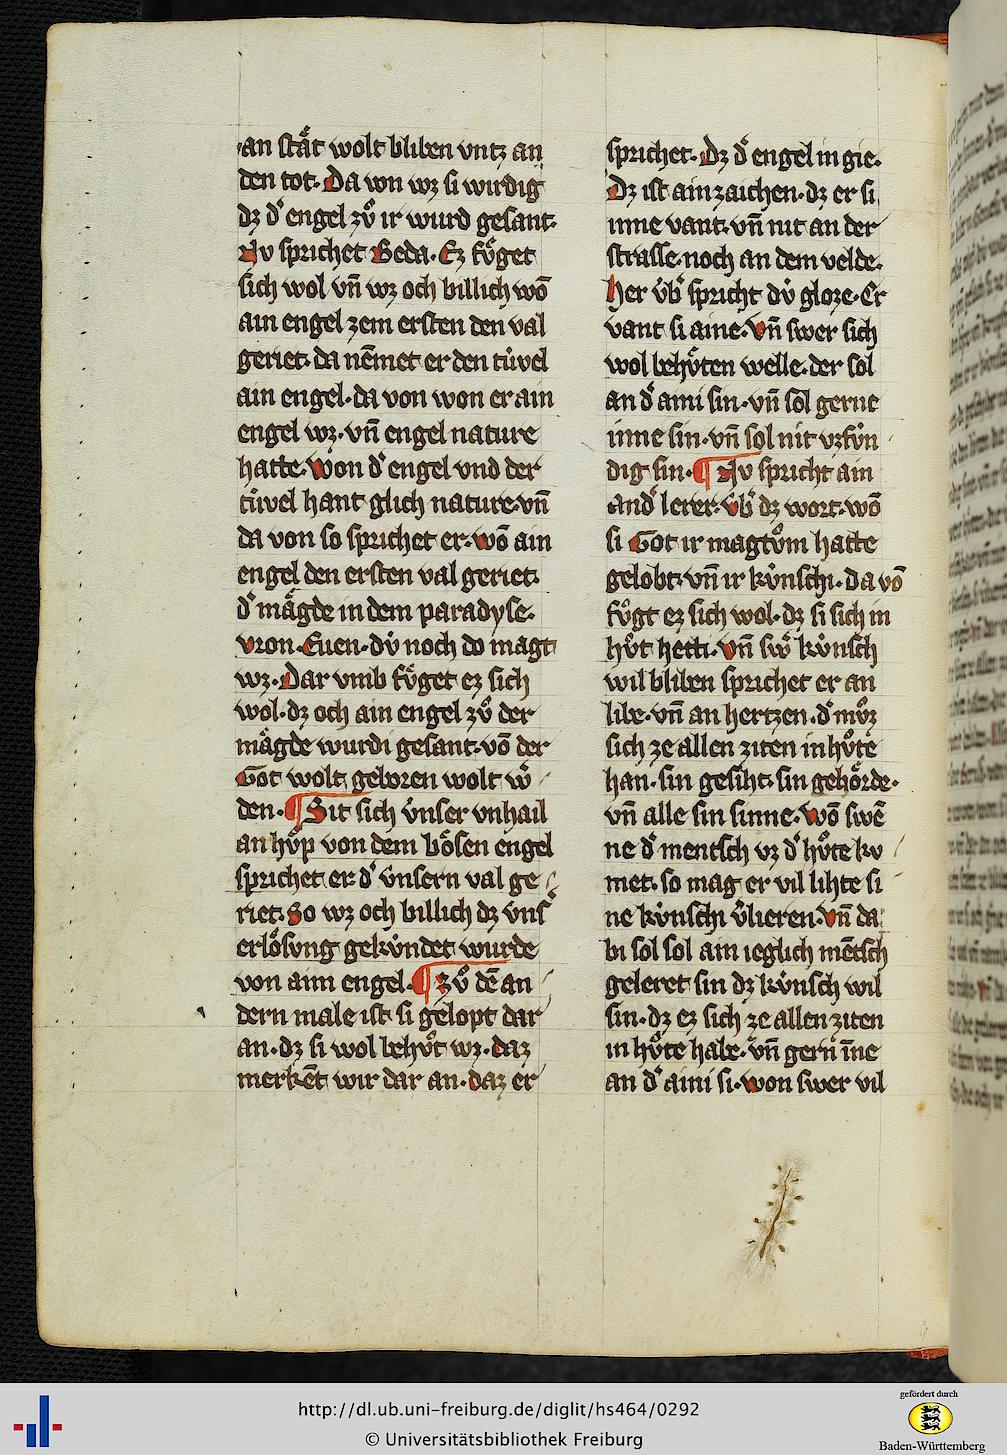 an stǎt wolt bliben vntz an
den tot. Da von wz si wirdig
dz d͛ engel zů ir wurd gesant.
Nv sprichet Beda. Ez fůget
sich wol vn̄ wz och billich wō
ain engel zem ersten den val
geriet. da nēmet er den tůvel
ain engel. da von won er ain
engel wz. vn̄ engel nature
hatte. won d͛ engel vnd der
tůvel hant glich nature. vn̄
da von so sprichet er. wō ain
engel den ersten val geriet.
d͛ mǎgde in dem paradyse.
vron. Euen. dv̊ noch do magt
wz. Dar vmb fůget ez sich
wol. dz och ain engel zů der
mǎgde wurdi gesant. vō der
Got wolt geboren wolt w͛
den. ¶ Sit sich v̊nser vnhail
an hůp von dem bǒsen engel
sprichet er d͛ v̊nsern val ge
riet. So wz och billich dz vns͛
erlǒsvng gekv̊ndet wurde
von aim engel. ¶ Zů dē an
dern male ist si gelopt dar
an. dz si wol behůt wz. daz
merkēt wir dar an. daz er
sprichet. Dz d͛ engel in gie.
Dz ist ain zaichen. dz er si
inne vant. vn̄ nit an der
strasse. noch an dem velde.
her v̊b͛ spricht dv̊ gloze. Er
vant si aine. vn̄ swer sich
wol behůten welle. der sol
an d͛ aini sin. vn̄ sol gerne
inne sin. vn̄ sol nit vzfv̊n
dig sin. ¶ Nv spricht ain
and͛ lerer. v̊b͛ dz wort. wō
si Got ir magtům hatte
gelobt. vn̄ ir kv̊nschi. da vō
fůgt ez sich wol. dz si sich in
hůt hetti. vn̄ sw͛ kv̊nsch
wil bliben sprichet er an
libe. vn̄ an hertzen. d͛ můz
sich ze allen ziten in hůte
han. sin gesiht. sin gehǒrde.
vn̄ alle sin sinne. wō swē
ne d͛ mentsch vz d͛ hůte kv
met. so mag er vil lihte si
ne kv̊nschi v͛lieren. vn̄ da
bi sol sol ain ieglich mētsch
geleret sin dz kv̊nsch wil
sin. dz ez sich ze allen ziten
in hůte habe. vn̄ gern īne
an d͛ aini si. won swer vil
http://dl.ub.uni-freiburg.de/diglit/hs464/0292
© Universitätsbibliothek Freiburg
gefördert durch
Baden-Württemberg